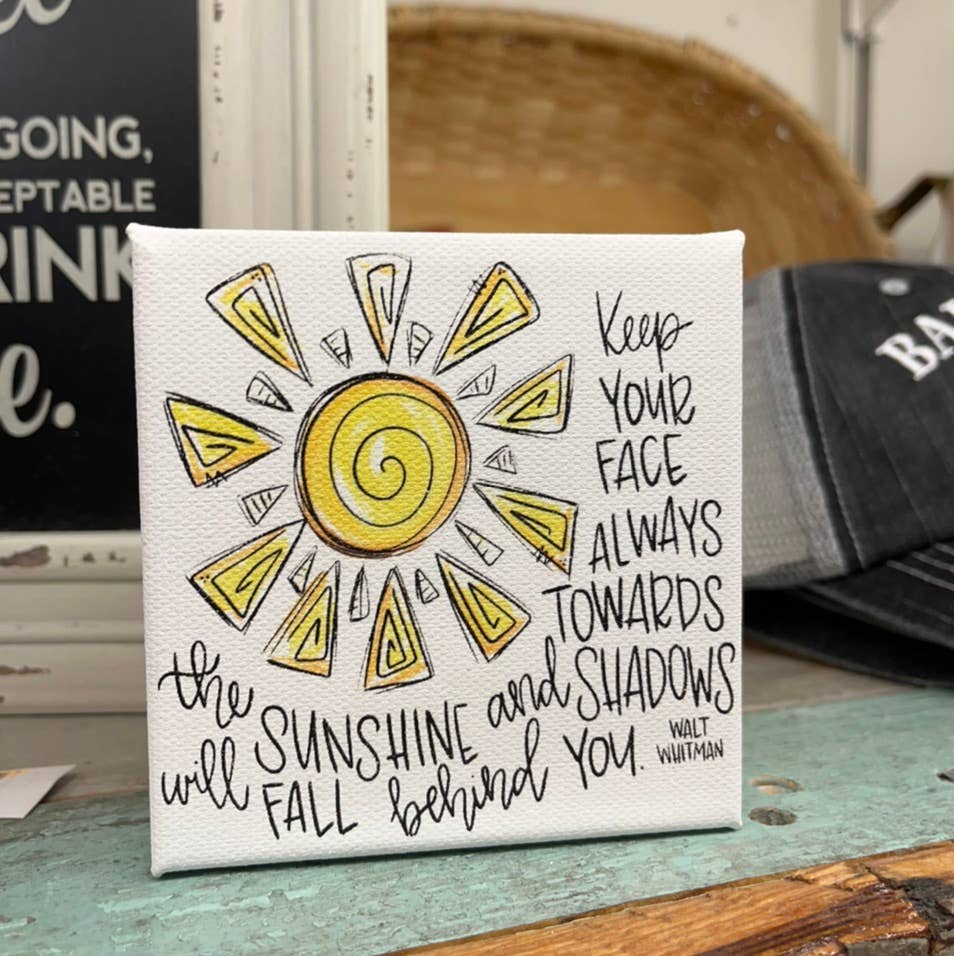 GOING,
Keep
YOUR
FACE
ALWAYS
TOWARDS
the SUNSHINE and SHADOWS
will FALL behind YOU.
WALT
WHITMAN